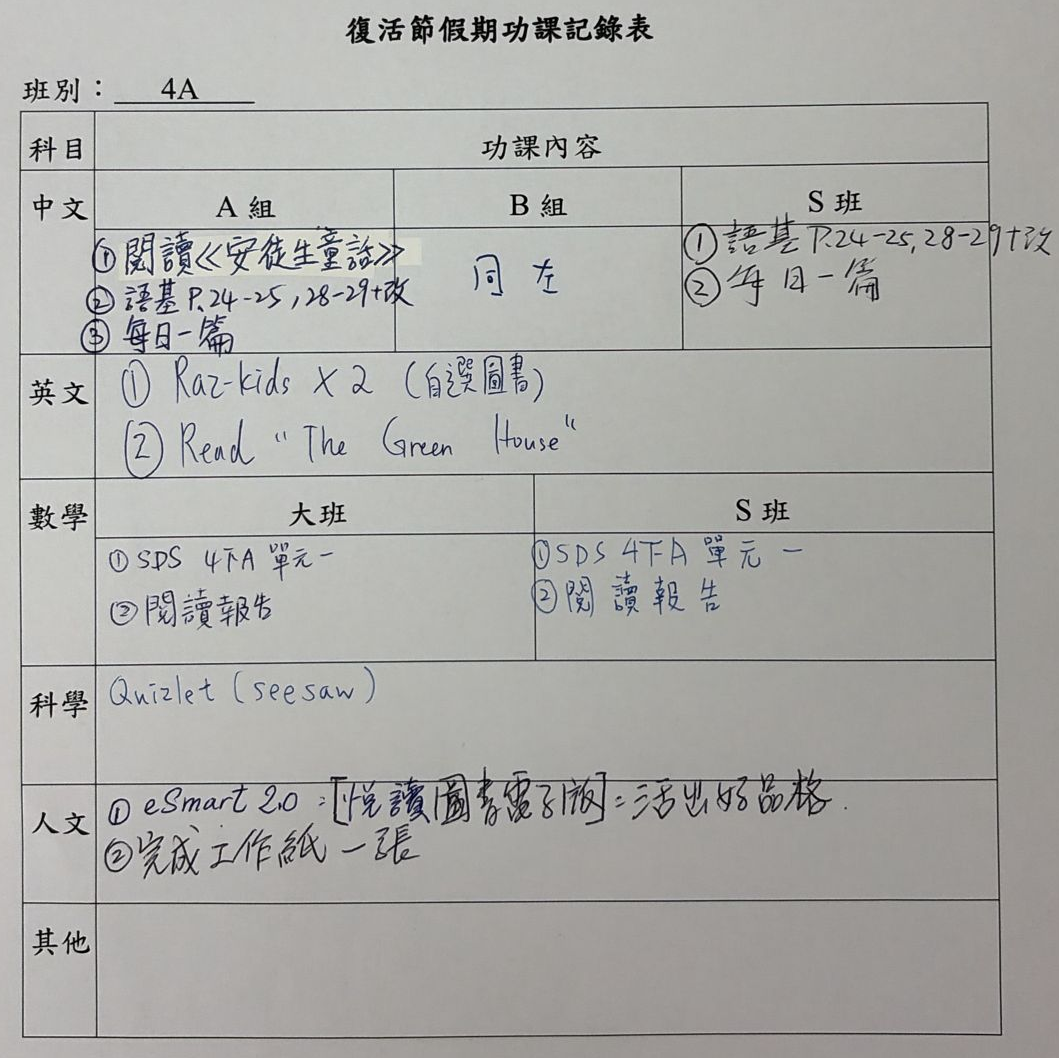 復活節假期功課記錄表
班別：4A
科目 功課內容
中文 A 組 B 組 S 班
①閱讀《安徒生童話》
②語基 P.24-25,28-29+改
③每日一篇
同左
①語基 P.24-25,28-29+改
②每日一篇
英文 ① Raz-kids X 2 (自選圖書)
② Read "The Green House"
數學 大班 S 班
①SDS 4下A 單元一
②閱讀報告
①SDS 4下A 單元一
②閱讀報告
科學 Quizlet (seesaw)
人文 ① eSmart 2.0：[悅讀圖書電子版]：活出好品格.
②完成工作紙一張
其他